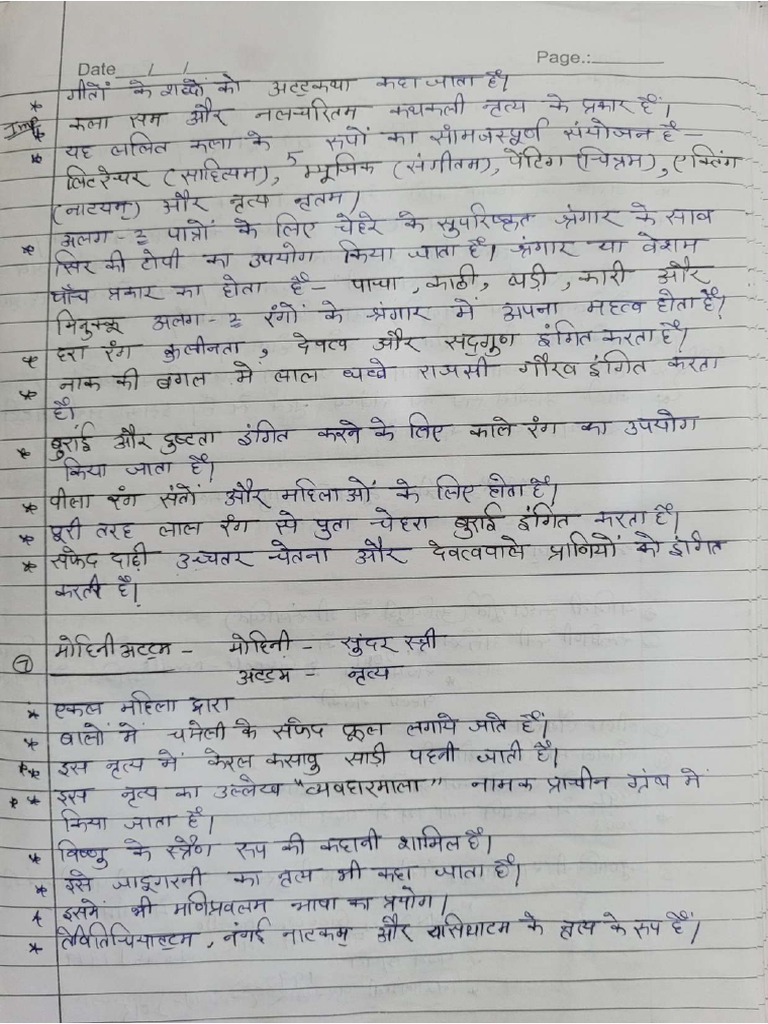 Date / / Page.:
* गीतों के शब्दों को अट्टकथा कहा जाता है।
Imp * कला सम और नलचरितम कथकली नृत्य के प्रकार हैं।
* यह ललित कला के 5 रूपों का सामंजस्पूर्ण संयोजन है -
लिटरेचर (साहित्यम), म्यूजिक (संगीतम), पेंटिंग (चित्रम), एक्टिंग
(नाटयम्) और नृत्य नृतम।
* अलग-2 पात्रों के लिए चेहरे के सुपरिष्कृत श्रंगार के साथ
सिर की टोपी का उपयोग किया जाता है। श्रंगार या वेशम
पाँच प्रकार का होता है - पाचा, काठी, थडी, कारी और
मिनुक्कू अलग-2 रंगों के श्रंगार में अपना महत्व होता है।
* हरा रंग कुलीनता, देवत्व और सद्गुण इंगित करता है।
* नाक की बगल में लाल धब्बे राजसी गौरव इंगित करता
है।
* बुराई और दुष्टता इंगित करने के लिए काले रंग का उपयोग
किया जाता है।
* पीला रंग संतों और महिलाओं के लिए होता है।
* पूरी तरह लाल रंग से पुता चेहरा बुराई इंगित करता है।
* सफेद दाढ़ी उच्चतर चेतना और देवत्ववाले प्राणियों को इंगित
करती है।
⑦ मोहिनीअट्टम - मोहिनी - सुंदर स्त्री
अट्टम - नृत्य
* एकल महिला द्वारा
* बालों में चमेली के सफेद फूल लगाये जाते हैं।
** इस नृत्य में केरल कसावु साडी पहनी जाती है।
** इस नृत्य का उल्लेख "व्यवहारमाला" नामक प्राचीन ग्रंथ में
किया जाता है।
* विष्णु के स्त्रैण रूप की कहानी शामिल है।
* इसे जादूगरनी का नृत्य भी कहा जाता है।
* इसमें भी मणिप्रवलम भाषा का प्रयोग।
* तेवितिचियाट्टम, नंगई नाटकम् और दासियाटम के नृत्य के रूप हैं।